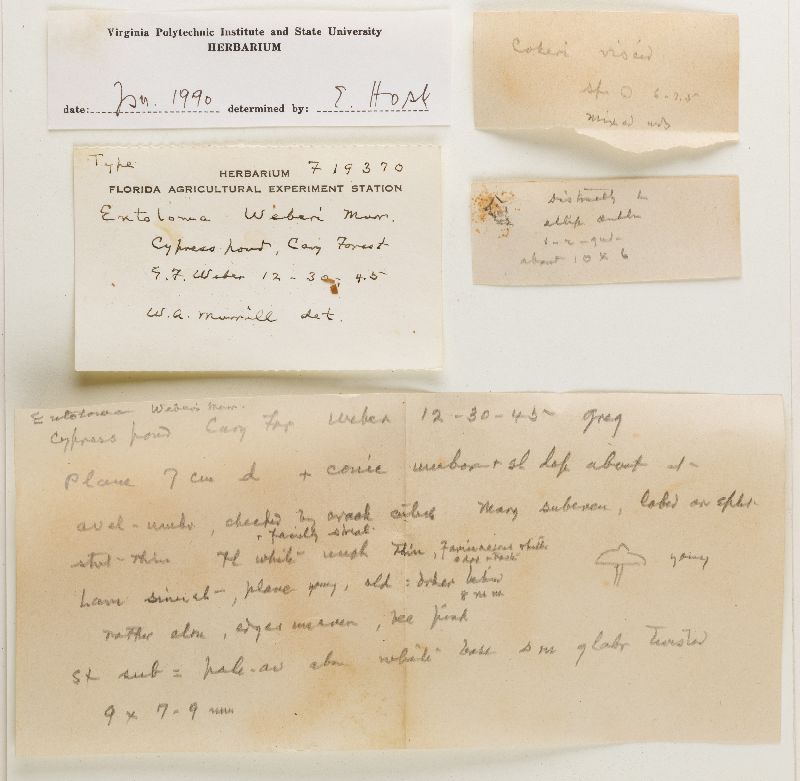 Virginia Polytechnic Institute and State University
HERBARIUM
date: Jan. 1990 determined by: E. Horak
Type
HERBARIUM F 19370
FLORIDA AGRICULTURAL EXPERIMENT STATION
Entoloma Weberi Murr.
Cypress pond, Cary Forest
G.F. Weber 12-30-45
W.A. Murrill det.
Cokeri viscid
6-7.5
mixed wds
Distinctly
ellip
1-2-gut-
about 10 x 6
Entoloma Weberi Murr.
Cypress pond Cary For Weber 12-30-45 greg
Plane 7 cm d + conic umbo + sl dep about it-
avel-umbr, checked by Marg suberen, lobed or split
+ faintly striat
striat-thin Fl white thin, Farinaceous
odor + taste
young
Lam sinuat-, plane young, old
8 mm
rather edges uneven, bec pink
St sub = pale-av abv white base sm glabr twisted
9 x 7-9 mm